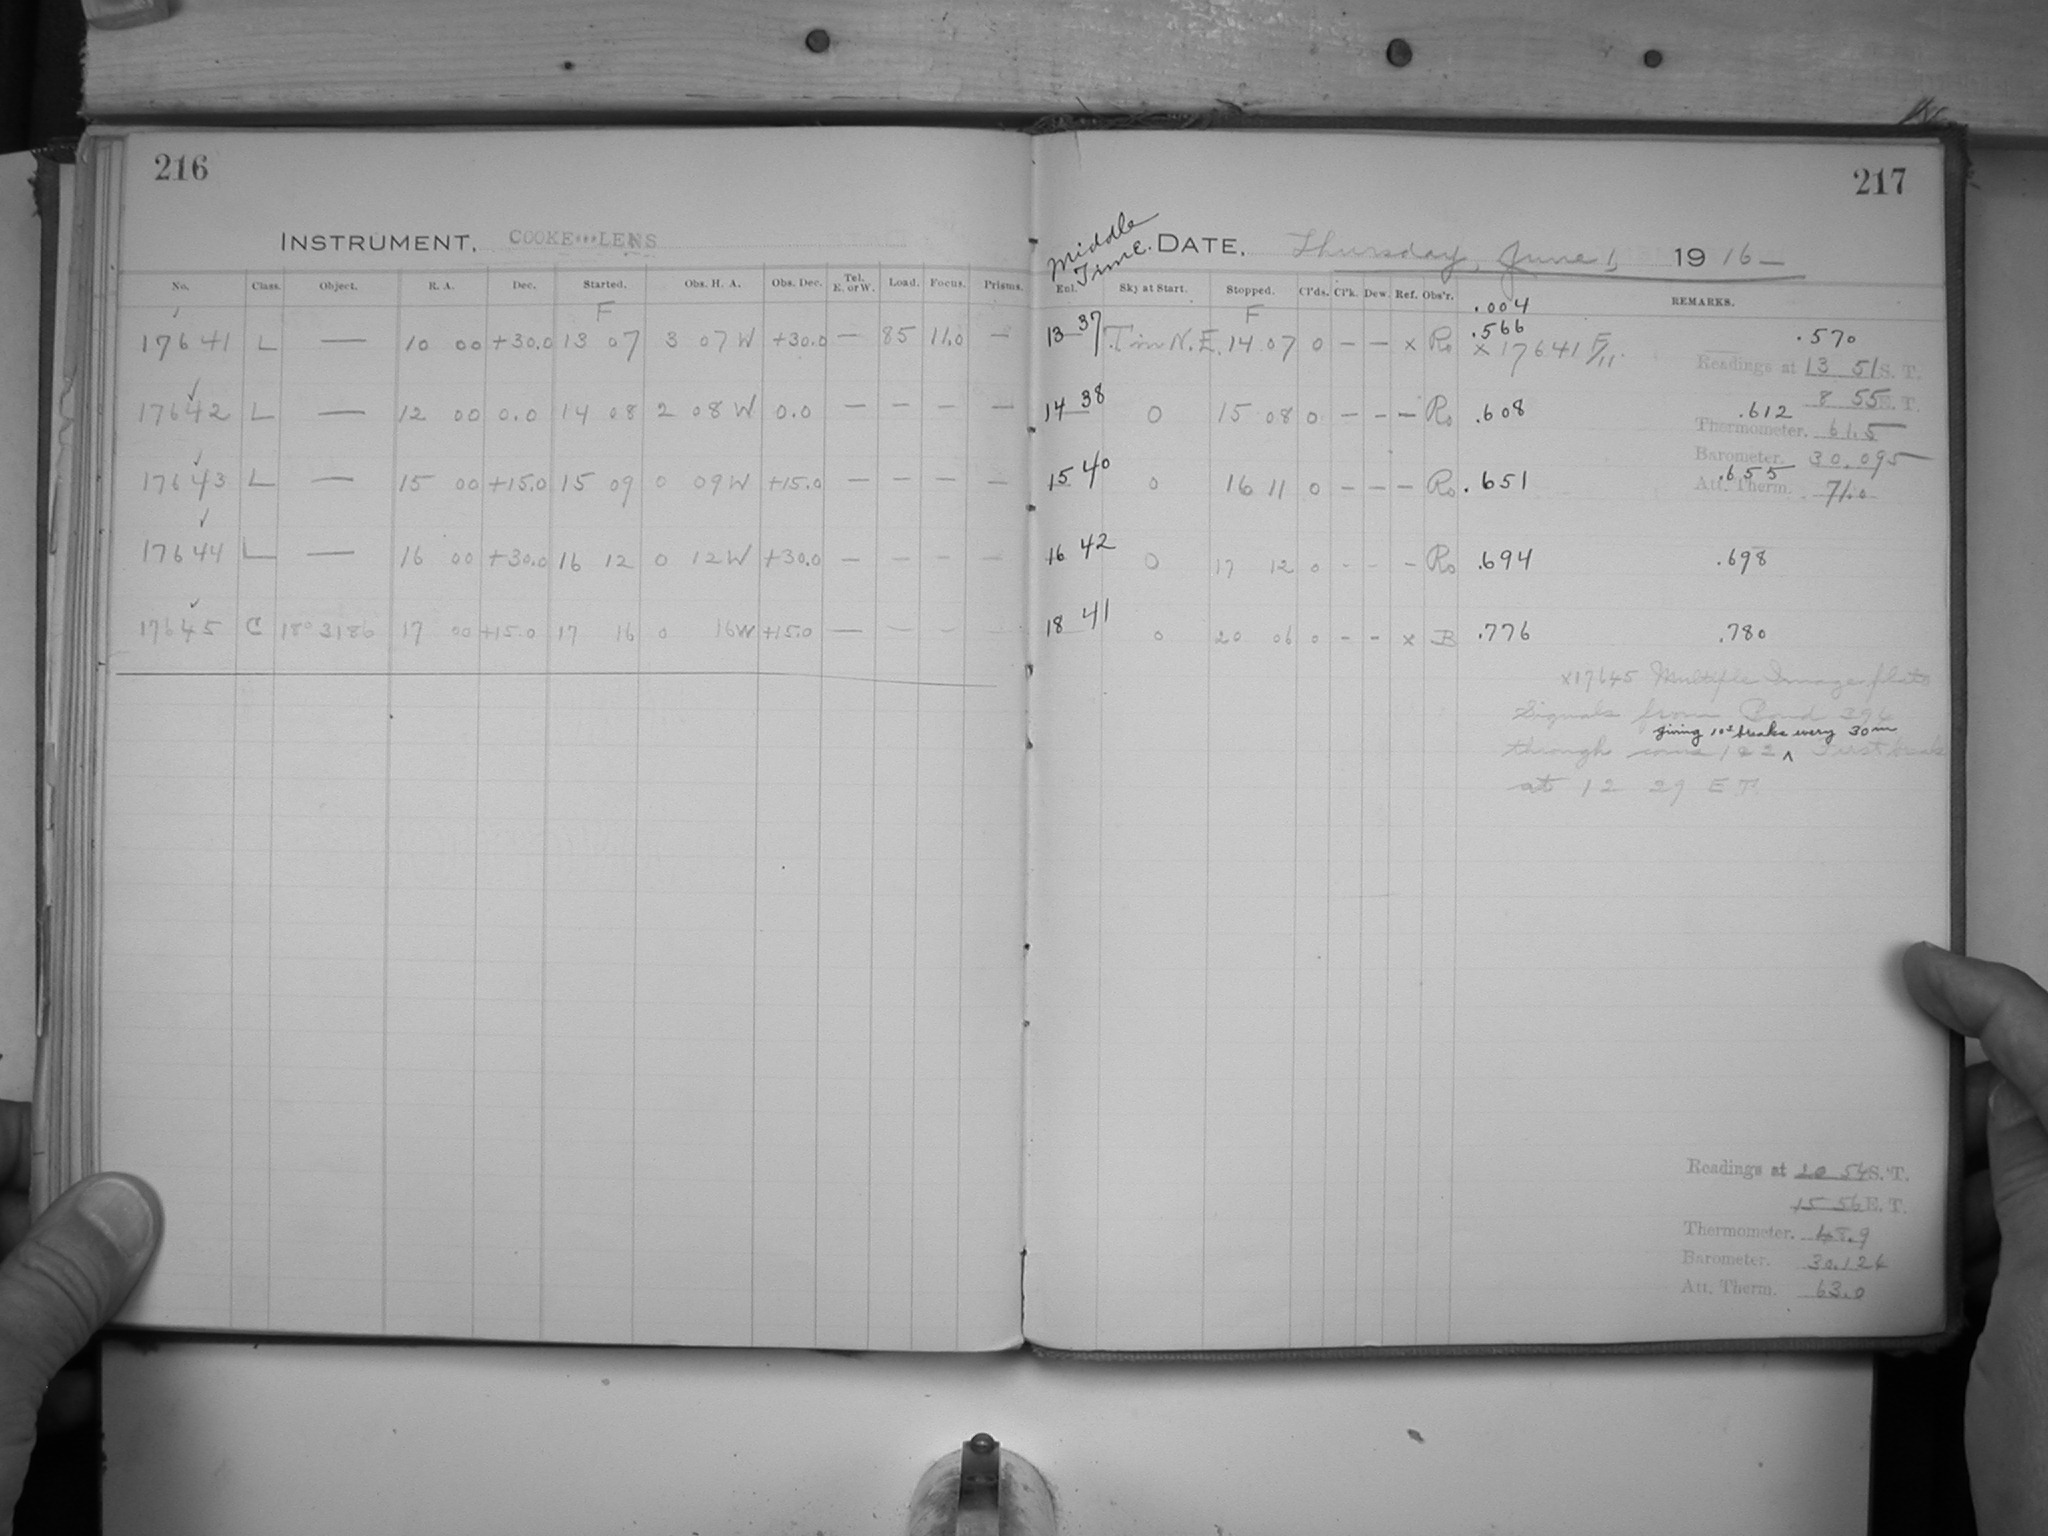 216
INSTRUMENT. COOKE LENS
No. Class. Object. R. A. Dec. Started. Obs. H. A. Obs. Dec. Tel. E. or W. Load. Focus. Prisms.
F
17641 L — 10 00 +30.0 13 07 3 07 W +30.0 — 85 11.0 —
17642 L — 12 00 0.0 14 08 2 08 W 0.0 — — — —
17643 L — 15 00 +15.0 15 09 0 09 W +15.0 — — — —
17644 L — 16 00 +30.0 16 12 0 12 W +30.0 — — — —
17645 C 18° 3186 17 00 +15.0 17 16 0 16 W +15.0 — — —
217
Middle Time. DATE. Thursday, June 1, 1916
Enl. Sky at Start. Stopped. Cl'ds. Cl'k. Dew. Ref. Obs'r. REMARKS.
F .004
13 37 N. E. 14 07 0 — — x Ro .566 .570
x 17641 F/11.
Readings at 13 51 S. T.
8 55 E. T.
14 38 0 15 08 0 — — — Ro .608 .612
Thermometer. 61.5
Barometer. 30.095
15 40 0 16 11 0 — — — Ro .651 .655
Att. Therm. 71.0
16 42 0 17 12 0 - - - Ro .694 .698
18 41 0 20 06 0 - - x B .776 .780
x17645 Multiple Image plate
Signals from Bond 394
giving 10s breaks every 30m
through 1 & 2 ^ First break
at 12 29 E T.
Readings at 20 54 S. T.
15 56 E. T.
Thermometer. 48.9
Barometer. 30.126
Att. Therm. 63.0